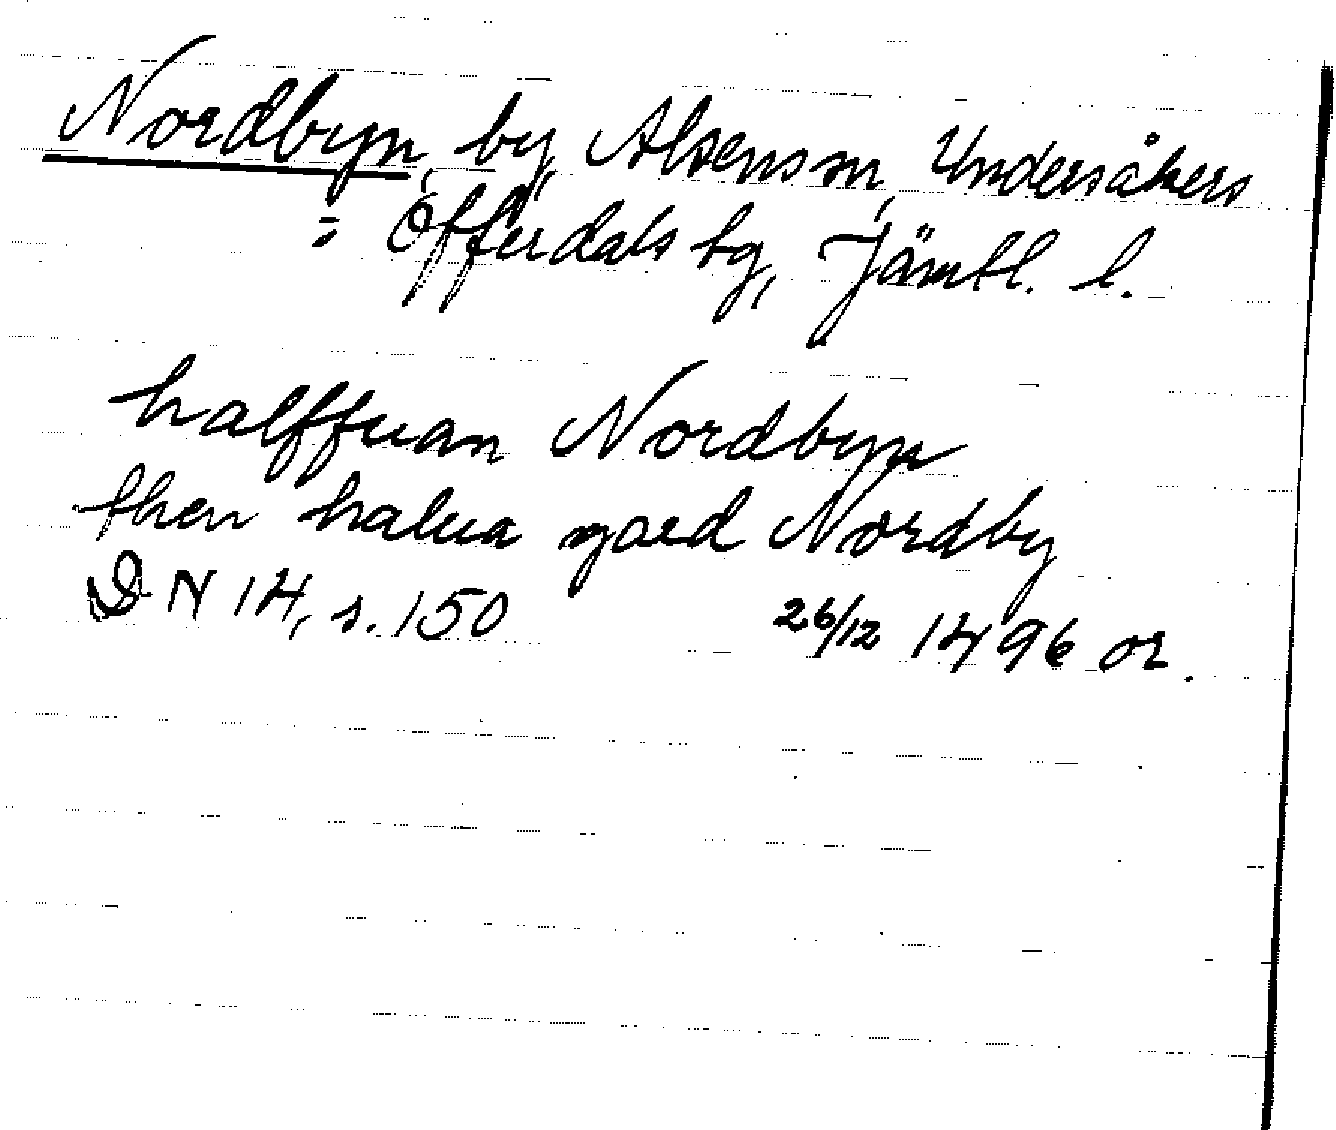 Nordbyn, by, Alsens sn, Undersåkers
= Offerdals tg, Jämtl. l.
halffuan Nordbyn
then halua gard Nordby
DN 14, s. 150 26/12 1496 or.